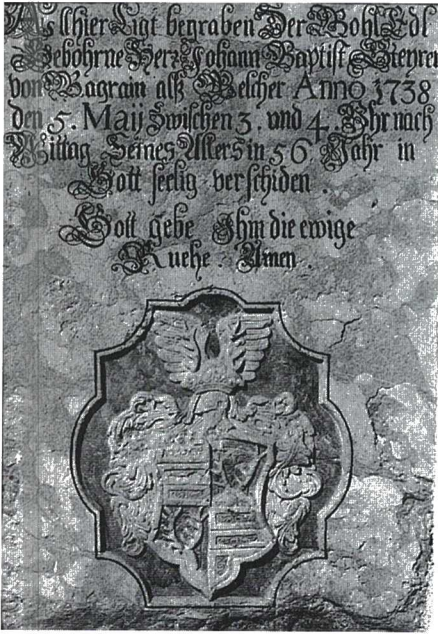 Alhier Ligt begraben Der Wohl Edl
Gebohrne Herr Johann Baptist Steyrer
von Wagrain alß Welcher Anno 1738
den 5. Maij Zwischen 3. und 4. Uhr nach
Mittag Seines Alters in 56 Jahr in
Gott seelig verschiden.
Gott gebe Ihm die ewige
Ruehe. Amen.